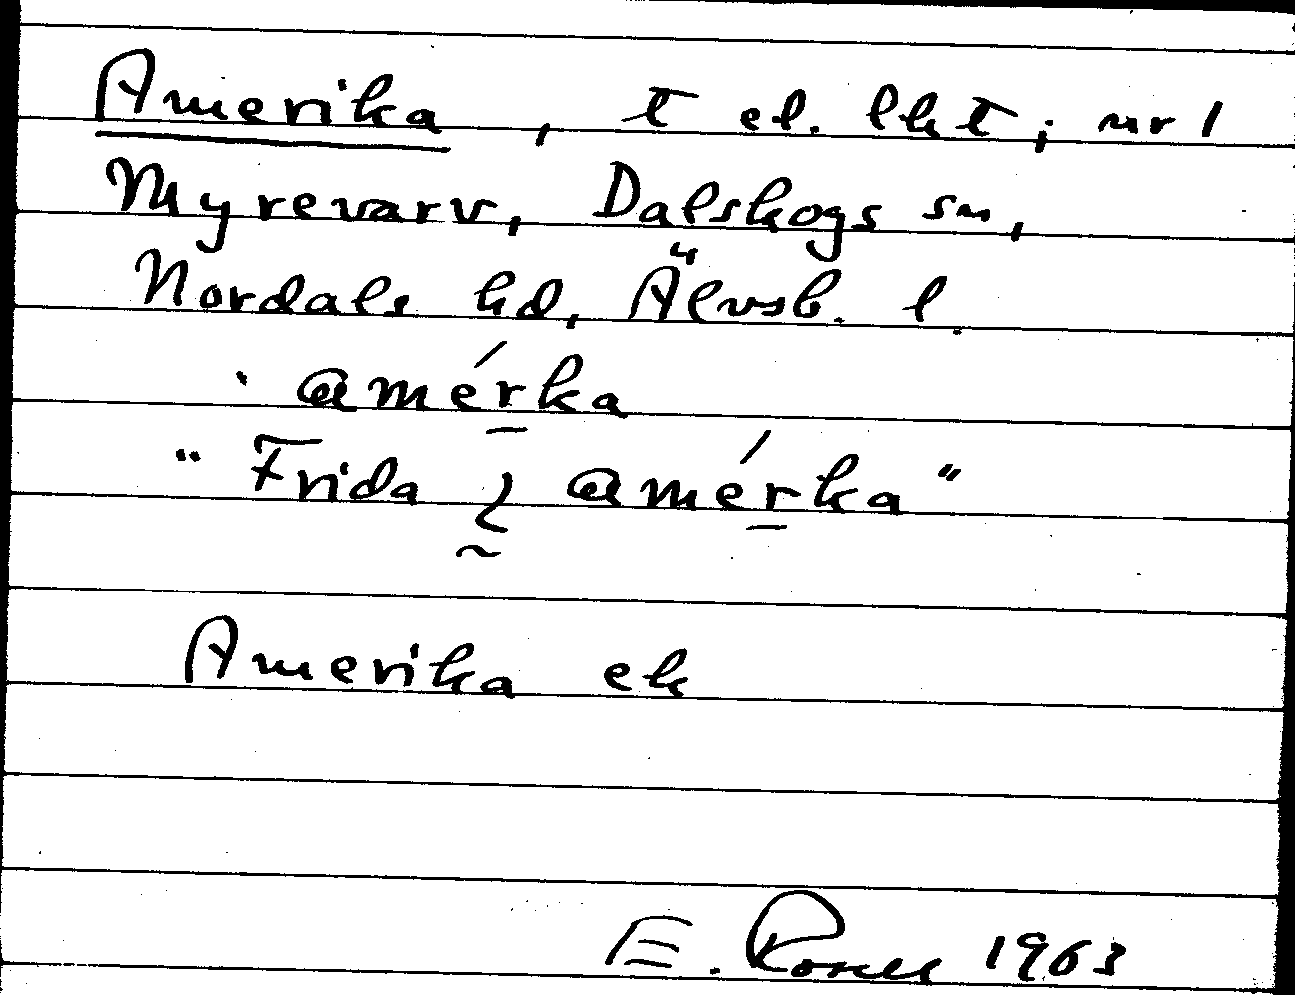 Amerika, t el. lht; nr 1
Myrevarv, Dalskogs sn,
Nordals hd, Älvsb. l.
amérka
"Frida amérka"
Amerika ek
E. 1963